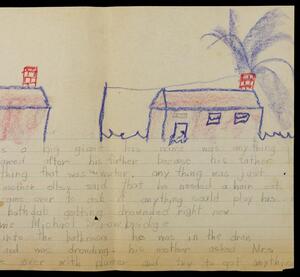 s a big giant his name was anything
greed after his father because his father
thing that was water, any thing was just
mother olsy said that he needed a hair cut
came over to ask if anything would play
bathtub getting drownded right now
me Michael
into the bathroom he was in the drain
and was drownding his mother asked Mrs
over with plunger and try to get anything